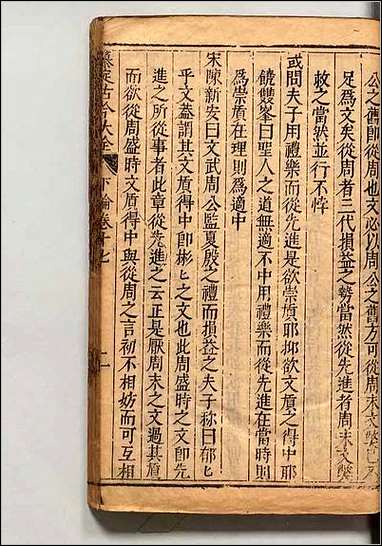 公之舊卽從周文必以周公之舊方可從周末文獘
足爲文矣從周者三代損益之辨當然從先進者周末文獘
救之當然並行不悖
或問夫子用禮樂而從先進是欲崇質耶抑欲文質之得中耶
饒雙峯曰聖人之道無適不中用禮樂而從先進在當時則
爲崇質在理則爲適中
宋陳新安曰文武周公監夏殷之禮而損益之夫子稱曰郁匕
乎文葢謂其文質得中卽彬匕之文也此周盛時之文卽先
進之所從事者此章從先進之云正是厭周末之文過其質
而欲從周盛時文質得中與從周之言初不相妨而可互相
古今大全 下論卷十七 二